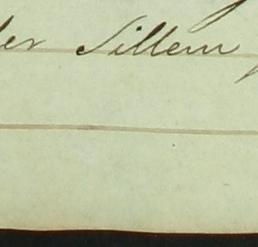 der Sillem